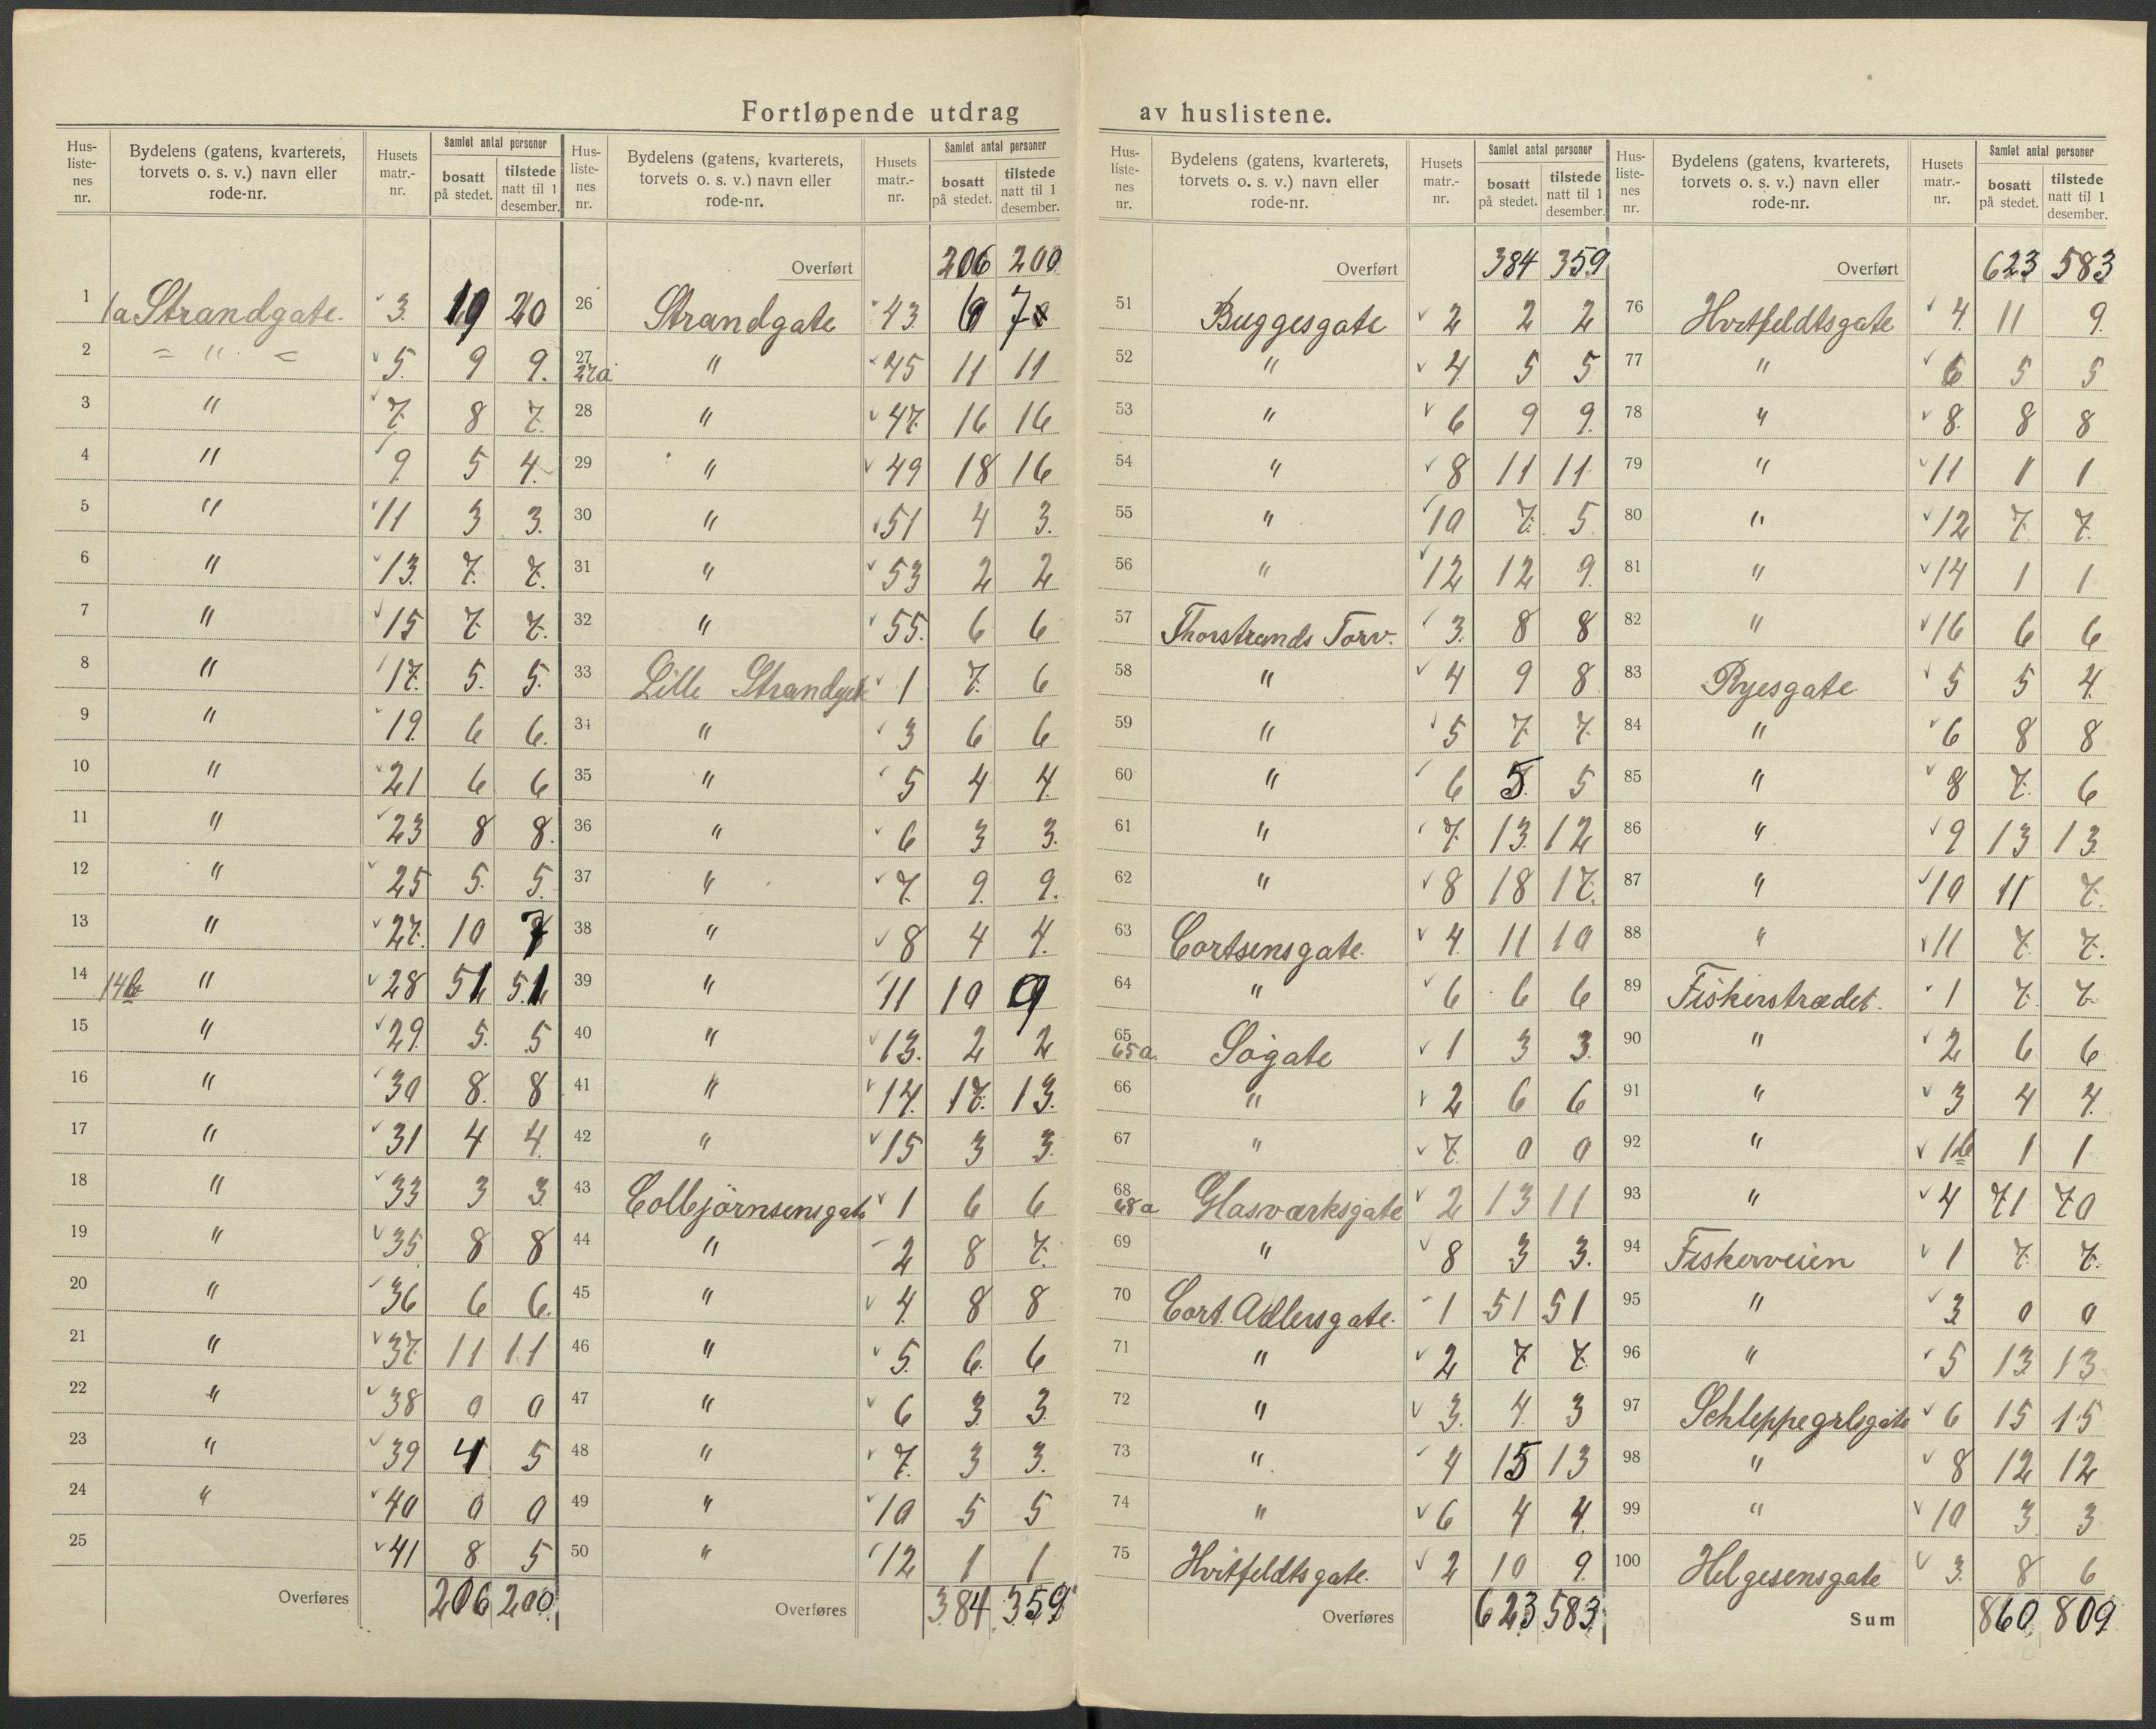 Fortløpende utdrag av huslistene.
Hus-
liste-
nes
nr.
Bydelens (gatens, kvarterets,
torvets o. s. v.) navn eller
rode-nr.
Husets
matr.-
nr.
Samlet antal personer
bosatt
på stedet.
tilstede
natt til 1
desember.
1 1a Strandgate. 3. 19 20
2 " 5. 9 9.
3 " 7. 8 7.
4 " 9 5 4.
5 " 11 3 3.
6 " 13. 7. 7.
7 " 15 7 7.
8 " 17. 5. 5.
9 " 19. 6 6.
10 " 21 6 6
11 " 23 8 8.
12 " 25 5. 5.
13 " 27. 10 7
14 14b " 28 51 51
15 " 29. 5. 5
16 " 30 8. 8
17 " 31 4 4.
18 " 33 3 3
19 " 35 8 8
20 " 36 6 6.
21 " 37. 11 11
22 " 38 0 0
23 " 39 4 5
24 " 40 0 0
25 41 8 5
Overføres 206 200
Hus-
liste-
nes
nr.
Bydelens (gatens, kvarterets,
torvets o. s. v.) navn eller
rode-nr.
Husets
matr.-
nr.
Samlet antal personer
bosatt
på stedet.
tilstede
natt til 1
desember.
Overført 206 200
26 Strandgate 43. 6 7
27 27a " 45 11 11
28 " 47. 16 16
29 " 49 18 16
30 " 51 4 3.
31 " 53 2 2
32 " 55. 6 6
33 Lille Strandgate 1 7. 6
34 " 3 6 6
35 " 5 4 4.
36 " 6 3 3.
37 " 7. 9. 9.
38 " 8 4 4.
39 " 11 10 9
40 " 13. 2 2
41 " 14. 17. 13.
42 " 15 3 3.
43 Colbjörnsensgate 1 6 6
44 " 2 8 7.
45 " 4. 8 8
46 " 5. 6. 6
47 " 6 3 3.
48 " 7. 3 3.
49 " 10 5 5
50 " 12 1 1
Overføres 384 359
Hus-
liste-
nes
nr.
Bydelens (gatens, kvarterets,
torvets o. s. v.) navn eller
rode-nr.
Husets
matr.-
nr.
Samlet antal personer
bosatt
på stedet.
tilstede
natt til 1
desember.
Overført 384 359
51 Buggesgate 2 2 2
52 " 4 5 5
53 " 6 9 9.
54 " 8 11 11
55 " 10 7. 5
56 " 12 12 9.
57 Thorstrands Torv. 3. 8 8
58 " 4 9 8
59 " 5 7. 7.
60 " 6 5 5
61 " 7. 13. 12
62 " 8 18 17.
63 Cortsensgate. 4. 11 10
64 " 6 6 6
65 65a. Søgate 1 3 3.
66 " 2 6 6
67 " 7. 0 0
68 68a Glasværksgate 2 13 11
69 " 8 3 3.
70 Cort. Adlersgate. 1 51 51
71 " 2 7 7.
72 " 3. 4. 3
73 " 4 15 13
74 " 6 4 4.
75 Hvitfeldtsgate. 2 10 9.
Overføres 623 583
Hus-
liste-
nes
nr.
Bydelens (gatens, kvarterets,
torvets o. s. v.) navn eller
rode-nr.
Husets
matr.-
nr.
Samlet antal personer
bosatt
på stedet.
tilstede
natt til 1
desember.
Overført 623 583
76 Hvitfeldtsgate 4. 11 9.
77 " 6 5 5
78 " 8. 8 8
79 " 11 1 1
80 " 12 7. 7.
81 " 14 1 1
82 " 16 6 6
83 Ryesgate. 5 5 4.
84 " 6 8 8
85 " 8 7. 6
86 " 9 13 13.
87 " 10 11 7.
88 " 11 7. 7.
89 Fiskerstrædet. 1 7. 7.
90 " 2 6 6
91 " 3 4 4.
92 " 1b 1 1
93 " 4 71 70
94 Fiskerveien 1 7. 7.
95 " 3 0 0
96 " 5 13 13
97 Schleppegrlsgate 6 15 15
98 " 8 12 12
99 " 10 3 3
100 Helgesensgate 3. 8 6
Sum 860 809